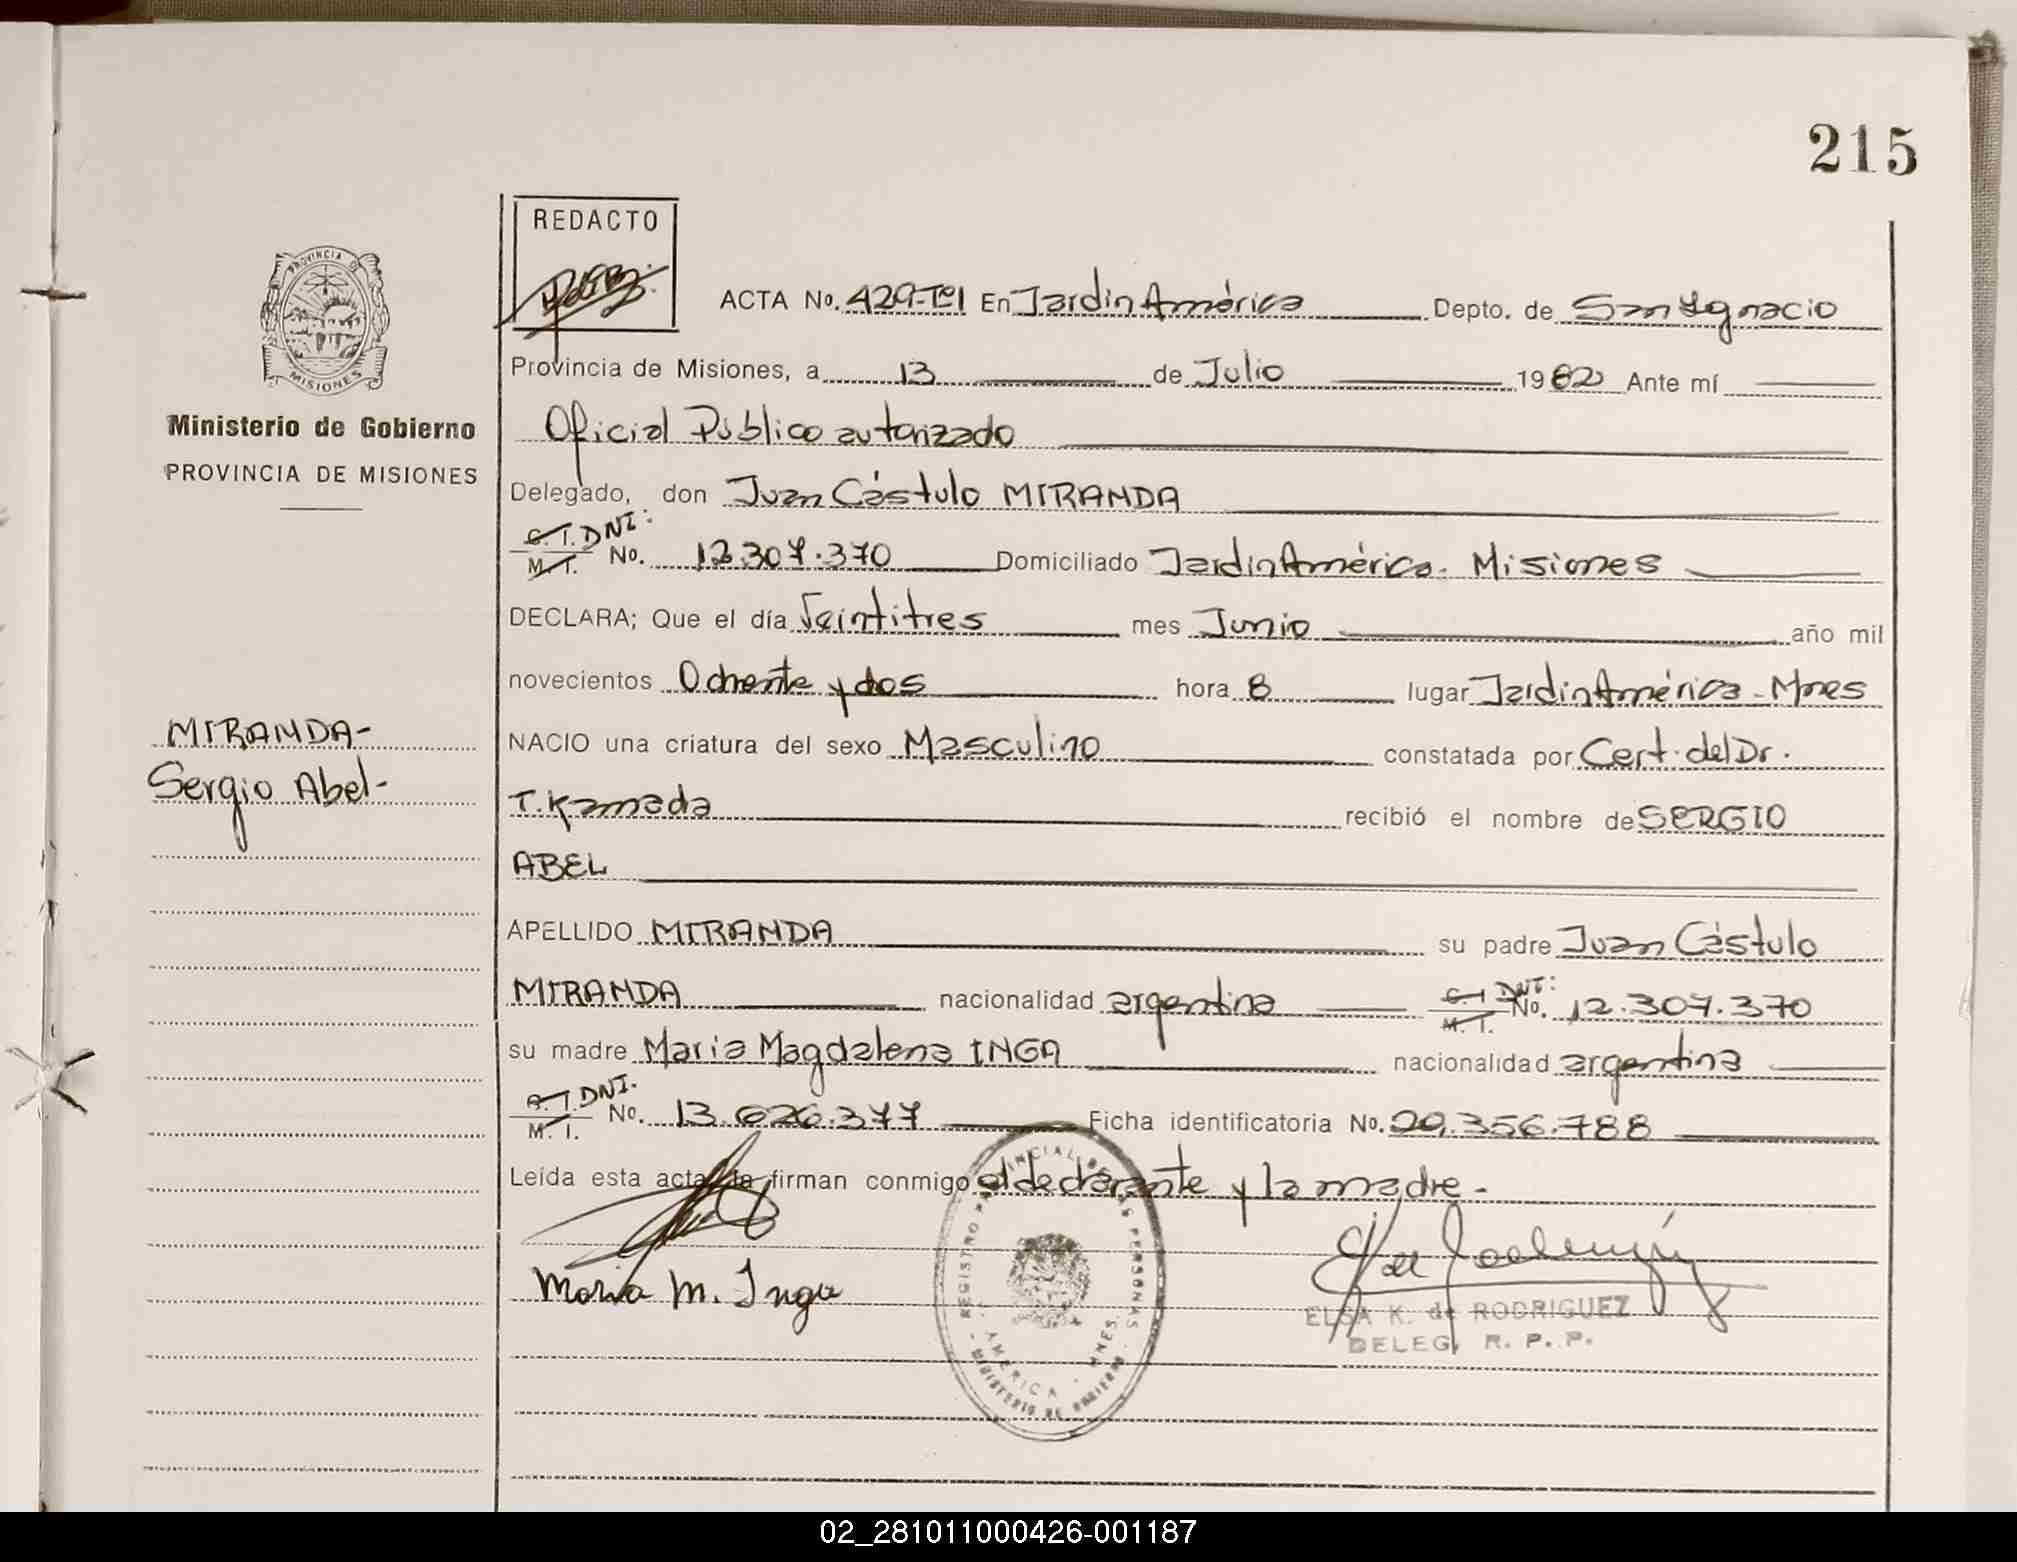 215
REDACTO
PROVINCIA DE
MISIONES
Ministerio de Gobierno
PROVINCIA DE MISIONES
MIRANDA-
Sergio Abel-
ACTA No. 429-Tº1 En Jardin América Depto. de San Ignacio
Provincia de Misiones, a 13 de Julio 1982 Ante mí
Oficial Público autorizado
Delegado, don Juan Cástulo MIRANDA
C. I. DNI:
M. I. No. 12.307.370 Domiciliado Jardin América. Misiones
DECLARA; Que el día Veintitres mes Junio año mil
novecientos Ochenta y dos hora 8 lugar Jardin América - Mnes
NACIO una criatura del sexo Masculino constatada por Cert. del Dr.
T. Kamada recibió el nombre de SERGIO
ABEL
APELLIDO MIRANDA su padre Juan Cástulo
MIRANDA nacionalidad argentina C. I DNI: M. I. No. 12.307.370
su madre Maria Magdalena INGA nacionalidad argentina
C. I. DNI.
M. I. No. 13.626.377 Ficha identificatoria No. 29.356.788
Leída esta acta la firman conmigo el declarante y la madre.-
Maria M. Inga
REGISTRO PROVINCIAL DE LAS PERSONAS
AMERICA - MNES.
MINISTERIO DE GOBIERNO
ELSA K. de RODRIGUEZ
DELEG. R. P. P.
02_281011000426-001187